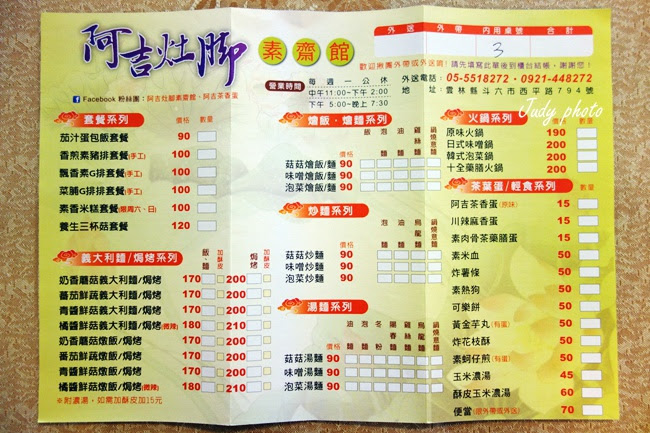 阿吉灶腳 素齋館
Facebook 粉絲團：阿吉灶腳素齋館、阿吉茶香蛋
外送 外帶 內用桌號 合計
3
歡迎揪團外帶或外送唷! 請先填寫此單後到櫃台結帳，謝謝您!
營業時間
每週一公休
中午11:00~下午 2:00
下午 5:00~晚上 7:30
外送電話：05-5518272‧0921-448272
地址：雲林縣斗六市西平路794號
Judy photo
套餐系列 價格 數量
茄汁蛋包飯套餐 90
香煎素豬排套餐(手工) 100
飄香素G排套餐(手工) 100
菜脯G排排套餐(手工) 100
素香米糕套餐(限周六、日) 100
養生三杯菇套餐 120
義大利麵/焗烤系列 飯、麵 加酥皮 焗烤 加酥皮
奶香蘑菇義大利麵/焗烤 170 200
蕃茄鮮蔬義大利麵/焗烤 170 200
青醬鮮菇義大利麵/焗烤 170 200
橘醬鮮菇義大利麵/焗烤(微辣) 180 210
奶香蘑菇燉飯/焗烤 170 200
蕃茄鮮蔬燉飯/焗烤 170 200
青醬鮮菇燉飯/焗烤 170 200
橘醬鮮菇燉飯/焗烤(微辣) 180 210
※附濃湯，如需加酥皮加15元
燴飯‧燴麵系列 價格 飯 泡麵 油麵 雞絲麵 烏龍麵 鍋燒意麵
菇菇燴飯/麵 90
味噌燴飯/麵 90
泡菜燴飯/麵 90
炒麵系列 價格 泡麵 油麵 烏龍麵 鍋燒意麵
菇菇炒麵 90
味噌炒麵 90
泡菜炒麵 90
湯麵系列 價格 油麵 泡麵 冬粉 陽春麵 雞絲麵 烏龍麵 鍋燒意麵
菇菇湯麵 90
味噌湯麵 90
泡菜湯麵 90
火鍋系列 價格 數量
原味火鍋 190
日式味噌鍋 200
韓式泡菜鍋 200
十全藥膳火鍋 200
茶葉蛋/輕食系列 數量
阿吉茶香蛋(原味) 15
川辣麻香蛋 15
素肉骨茶藥膳蛋 15
素米血 50
炸薯條 50
素熱狗 50
可樂餅 50
黃金芋丸(有蛋) 50
炸花枝酥 50
素蚵仔煎(有蛋) 50
玉米濃湯 45
酥皮玉米濃湯 60
便當(限外帶或外送) 70